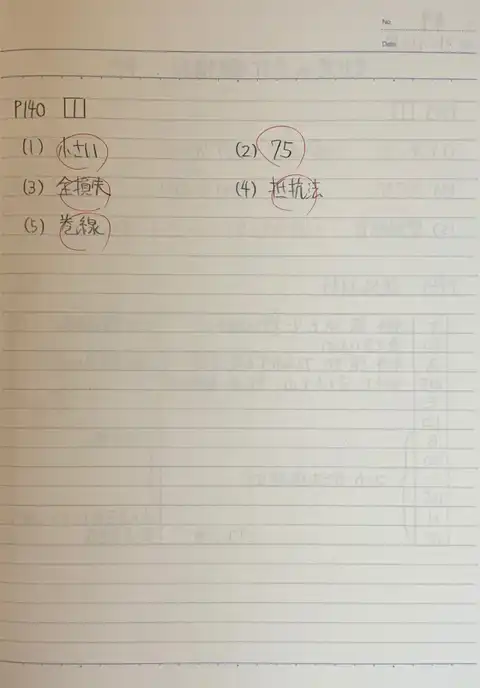 No.
Date
P140 □□
(1) 小さい (2) 75
(3) 全損失 (4) 抵抗法
(5) 巻線